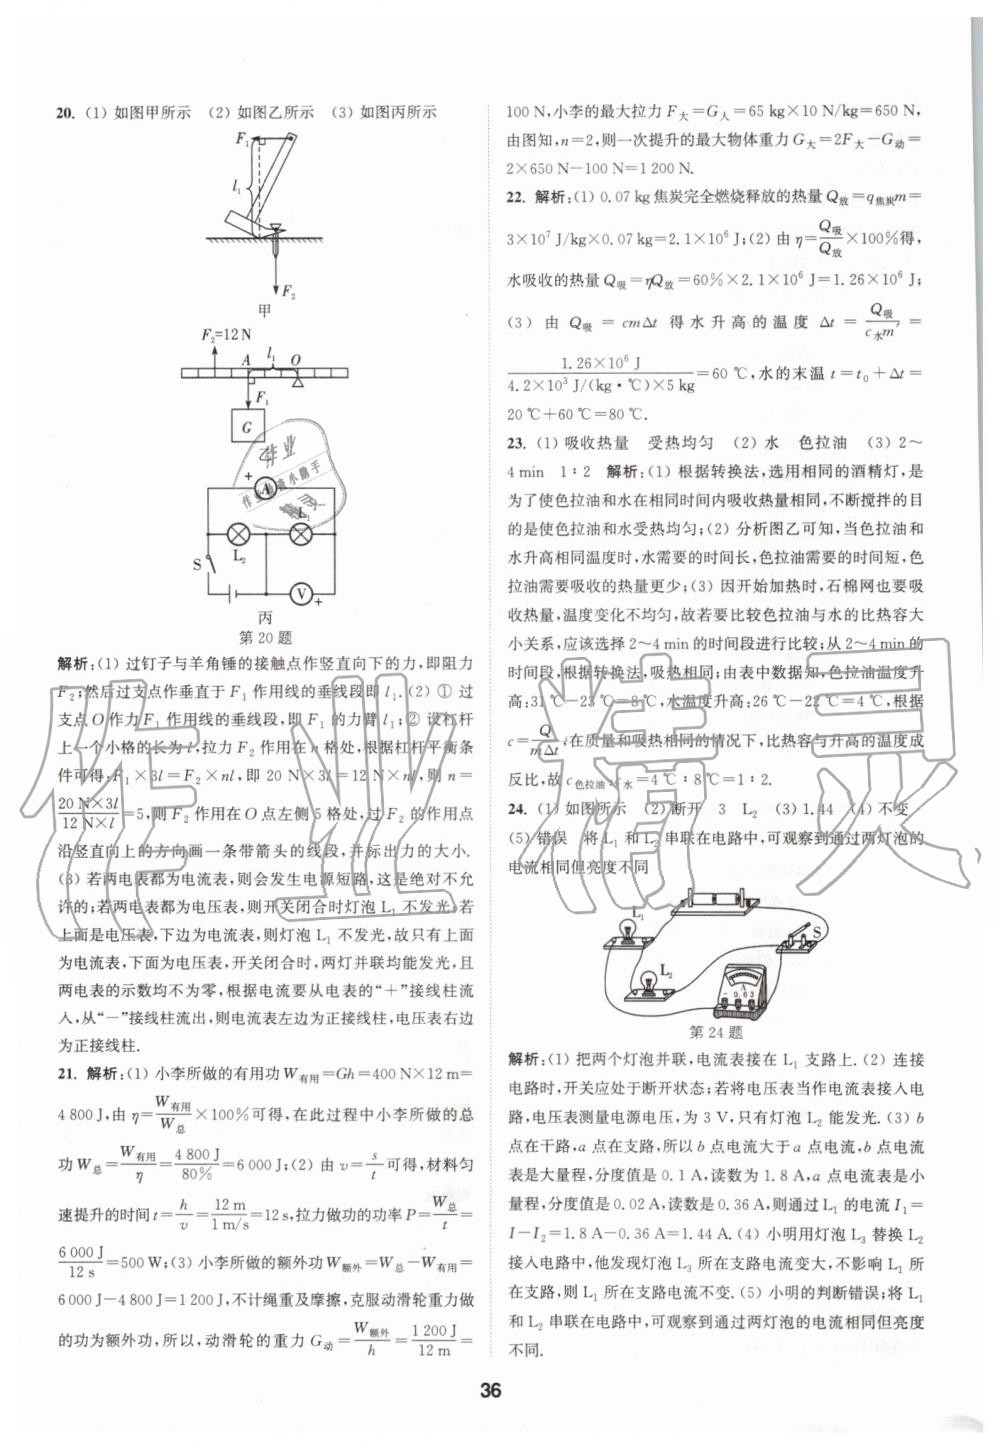 20. (1) 如图甲所示 (2) 如图乙所示 (3) 如图丙所示
F₁
l₁
F₂
甲
F₂=12 N
A l₁ O
F₁
G
+ A
L₁
L₂
S
V +
丙
第 20 题
解析:(1) 过钉子与羊角锤的接触点作竖直向下的力,即阻力
F₂;然后过支点作垂直于 F₁ 作用线的垂线段即 l₁.(2) ① 过
支点 O 作力 F₁ 作用线的垂线段,即 F₁ 的力臂 l₁;② 设杠杆
上一个小格的长为 l,拉力 F₂ 作用在 n 格处,根据杠杆平衡条
件可得:F₁×3l=F₂×nl,即 20 N×3l=12 N×nl,则 n=
20 N×3l/12 N×l=5,则 F₂ 作用在 O 点左侧 5 格处,过 F₂ 的作用点
沿竖直向上的方向画一条带箭头的线段,并标出力的大小.
(3) 若两电表都为电流表,则会发生电源短路,这是绝对不允
许的;若两电表都为电压表,则开关闭合时灯泡 L₁ 不发光;若
上面是电压表,下边为电流表,则灯泡 L₁ 不发光,故只有上面
为电流表,下面为电压表,开关闭合时,两灯并联均能发光,且
两电表的示数均不为零,根据电流要从电表的“+”接线柱流
入,从“-”接线柱流出,则电流表左边为正接线柱,电压表右边
为正接线柱.
21. 解析:(1) 小李所做的有用功 W有用=Gh=400 N×12 m=
4 800 J,由 η=W有用/W总×100%可得,在此过程中小李所做的总
功 W总=W有用/η=4 800 J/80%=6 000 J;(2) 由 v=s/t可得,材料匀
速提升的时间 t=h/v=12 m/1 m/s=12 s,拉力做功的功率 P=W总/t=
6 000 J/12 s=500 W;(3) 小李所做的额外功 W额外=W总-W有用=
6 000 J-4 800 J=1 200 J,不计绳重及摩擦,克服动滑轮重力做
的功为额外功,所以,动滑轮的重力 G动=W额外/h=1 200 J/12 m=
100 N,小李的最大拉力 F大=G人=65 kg×10 N/kg=650 N,
由图知,n=2,则一次提升的最大物体重力 G大=2F大-G动=
2×650 N-100 N=1 200 N.
22. 解析:(1) 0.07 kg 焦炭完全燃烧释放的热量 Q放=q焦炭m=
3×10⁷ J/kg×0.07 kg=2.1×10⁶ J;(2) 由 η=Q吸/Q放×100%得,
水吸收的热量 Q吸=ηQ放=60%×2.1×10⁶ J=1.26×10⁶ J;
(3) 由 Q吸 = cmΔt 得水升高的温度 Δt = Q吸/c水m′ =
1.26×10⁶ J/4.2×10³ J/(kg·℃)×5 kg=60 ℃,水的末温 t=t₀+Δt=
20 ℃+60 ℃=80 ℃.
23. (1) 吸收热量 受热均匀 (2) 水 色拉油 (3) 2～
4 min 1∶2 解析:(1) 根据转换法,选用相同的酒精灯,是
为了使色拉油和水在相同时间内吸收热量相同,不断搅拌的目
的是使色拉油和水受热均匀;(2) 分析图乙可知,当色拉油和
水升高相同温度时,水需要的时间长,色拉油需要的时间短,色
拉油需要吸收的热量更少;(3) 因开始加热时,石棉网也要吸
收热量,温度变化不均匀,故若要比较色拉油与水的比热容大
小关系,应该选择 2～4 min 的时间段进行比较;从 2～4 min 的
时间段,根据转换法,吸热相同;由表中数据知,色拉油温度升
高:31 ℃-23 ℃=8 ℃,水温度升高:26 ℃-22 ℃=4 ℃,根据
c=Q/mΔt,在质量和吸热相同的情况下,比热容与升高的温度成
反比,故 c色拉油∶c水=4 ℃∶8 ℃=1∶2.
24. (1) 如图所示 (2) 断开 3 L₂ (3) 1.44 (4) 不变
(5) 错误 将 L₁ 和 L₂ 串联在电路中,可观察到通过两灯泡的
电流相同但亮度不同
L₁
S
L₂
- 0.6 3
第 24 题
解析:(1) 把两个灯泡并联,电流表接在 L₁ 支路上.(2) 连接
电路时,开关应处于断开状态;若将电压表当作电流表接入电
路,电压表测量电源电压,为 3 V,只有灯泡 L₂ 能发光.(3) b
点在干路,a 点在支路,所以 b 点电流大于 a 点电流,b 点电流
表是大量程,分度值是 0.1 A,读数为 1.8 A,a 点电流表是小
量程,分度值是 0.02 A,读数是 0.36 A,则通过 L₁ 的电流 I₁=
I-I₂=1.8 A-0.36 A=1.44 A.(4) 小明用灯泡 L₃ 替换 L₂
接入电路中,他发现灯泡 L₃ 所在支路电流变大,不影响 L₁ 所
在支路,则 L₁ 所在支路电流不变.(5) 小明的判断错误;将 L₁
和 L₂ 串联在电路中,可观察到通过两灯泡的电流相同但亮度
不同.
36
作业精灵